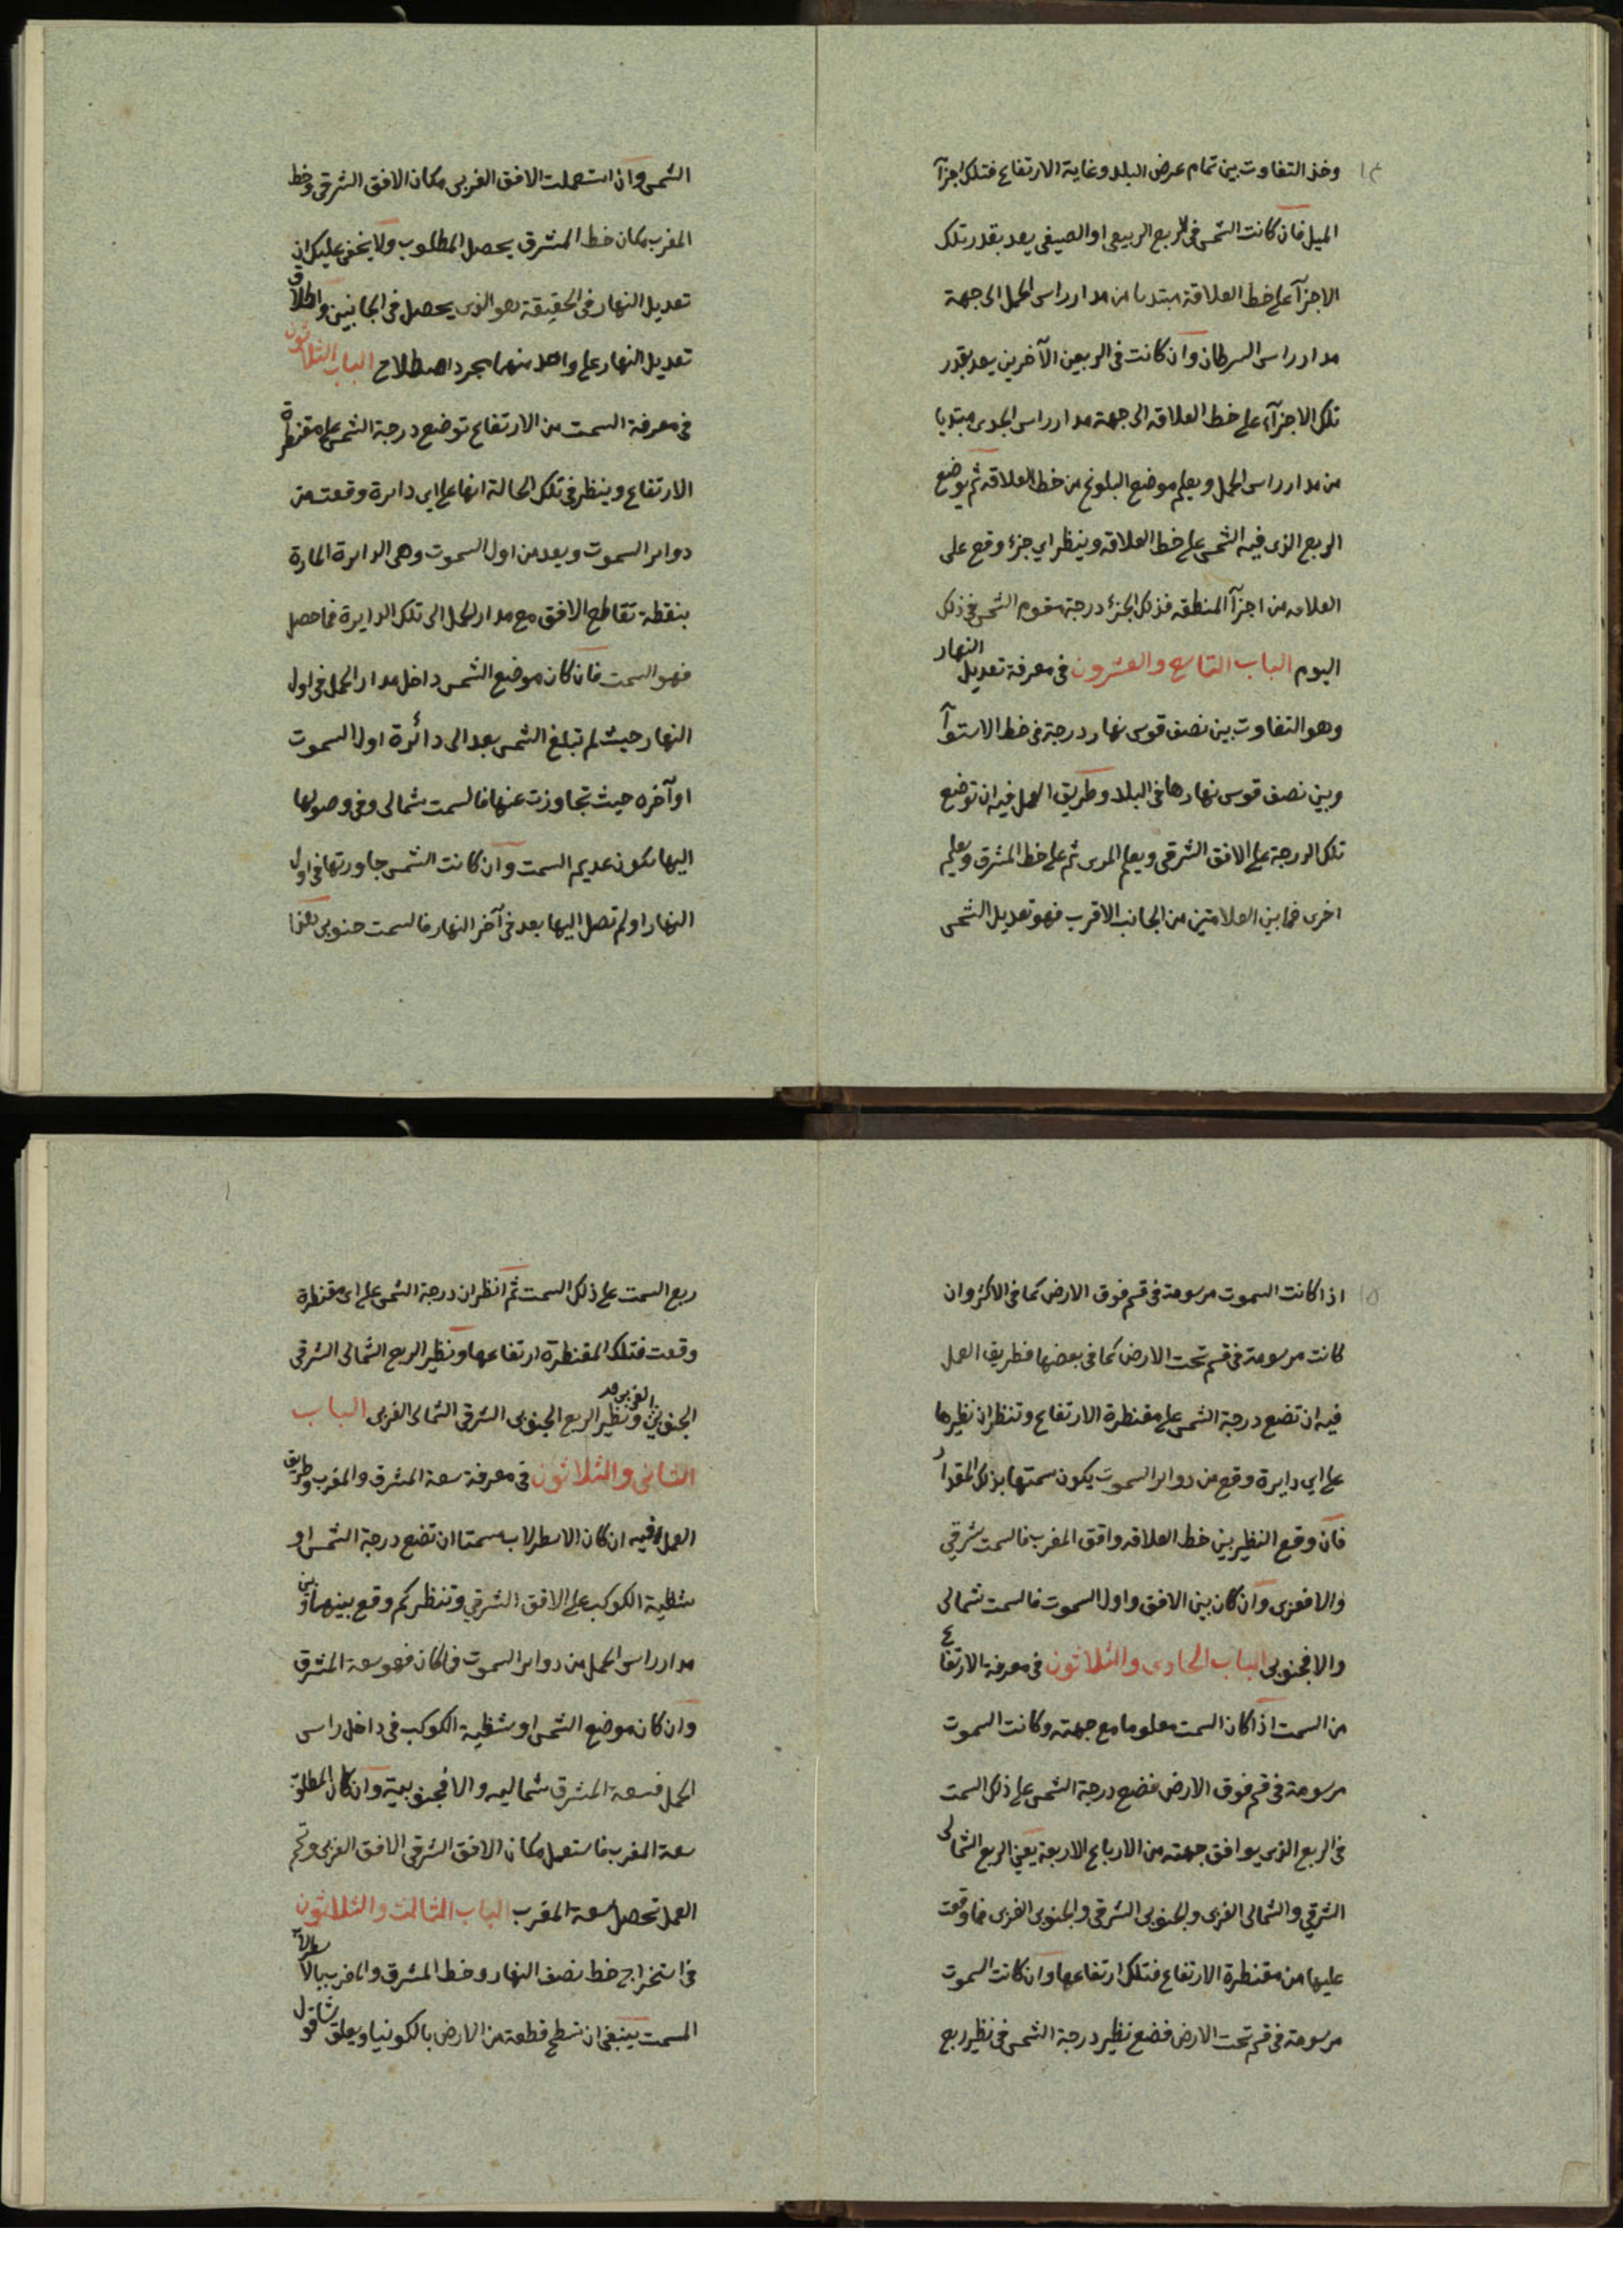 ١٤
وخذ التفاوت بين تمام عرض البلد وغاية الارتفاع فتلك اجزآ
الميل فان كانت الشمس في الربع الربيعي او الصيفي يعد بقدر تلك
الاجزآ على خط العلاقة مبتديا من مدار راس الحمل الى جهة
مدار راس السرطان وان كانت في الربعين الآخرين يعد بقدر
تلك الاجزآء على خط العلاقه الى جهة مدار راس الجدى مبتديا
من مدار راس الحمل ويعلم موضع البلوغ من خط العلاقه ثم يوضع
الربع الذى فيه الشمس على خط العلاقه وينظر اي جزء وقع على
العلامه من اجزآ المنطقه فذلك الجزء درجة تقويم الشمس في ذلك
اليوم الباب التاسع والعشرون فى معرفة تعديل النهار
وهو التفاوت بين نصف قوس نهار درجة فى خط الاستوآ
وبين نصف قوس نهارها فى البلد وطريق العمل فيه ان توضع
تلك الدرجة على الافق الشرقى ويعلم المرى ثم على خط المشرق ويعلم
اخرى فما بين العلامتين من الجانب الاقرب فهو تعديل الشمس
الشمس وان استعملت الافق الغربى مكان الافق الشرقى وخط
المغرب مكان خط المشرق يحصل المطلوب ولا يخفى عليك ان
تعديل النهار فى الحقيقة هو الذى يحصل فى الجانبين واطلاق
تعديل النهار على واحد منهما بمجرد اصطلاح الباب الثلاثون
فى معرفة السمت من الارتفاع توضع درجة الشمس على مقنطرة
الارتفاع وينظر فى تلك الحالة انها على اى دايرة وقعت من
دواير السموت ويعد من اول السموت وهى الدايرة المارة
بنقطة تقاطع الافق مع مدار الحمل الى تلك الدايرة فما حصل
فهو السمت فان كان موضع الشمس داخل مدار الحمل فى اول
النهار حيث لم تبلغ الشمس بعد الى دائرة اول السموت
او آخره حيث تجاوزت عنها فالسمت شمالى وفى وصولها
اليها يكون عديم السمت وان كانت الشمس جاورتها فى اول
النهار او لم تصل اليها بعد فى آخر النهار فالسمت جنوبى هذا
١٥
اذا كانت السموت مرسومة فى قسم فوق الارض كما فى الاكثر وان
كانت مرسومة فى قسم تحت الارض كما فى بعضها فطريق العمل
فيه ان تضع درجة الشمس على مقنطرة الارتفاع وتنظر ان نظيرها
على اي دايرة وقع من دواير السموت يكون سمتها بذلك المقدار
فان وقع النظير بين خط العلاقه وافق المغرب فالسمت شرقي
والا فغربى وان كان بين الافق واول السموت فالسمت شمالى
والا فجنوبى الباب الحادى والثلاثون فى معرفة الارتفاع
من السمت اذا كان السمت معلوما مع جهته وكانت السموت
مرسومة فى قسم فوق الارض فضع درجة الشمس على ذلك السمت
فى الربع الذى يوافق جهته من الارباع الاربعة يعنى الربع الشمالى
الشرقي والشمالى الغربى والجنوبى الشرقى والجنوبى الغربى فما وقعت
عليها من مقنطرة الارتفاع فتلك ارتفاعها وان كانت السموت
مرسومة فى قسم تحت الارض فضع نظير درجة الشمس فى نظير ربع
ربع السمت على ذلك السمت ثم انظر ان درجة الشمس على اى مقنطرة
وقعت فتلك المقنطرة ارتفاعها ونظير الربع الشمالى الشرقى
الجنوبى الغربى ونظير الربع الجنوبى الشرقى الشمالى الغربى الباب
الثانى والثلاثون فى معرفة سعة المشرق والمغرب وطريق
العمل فيه ان كان الاسطرلاب مسمتا ان تضع درجة الشمس او
شظية الكوكب على الافق الشرقي وتنظر كم وقع بينها وبين
مدار راس الحمل من دواير السموت فما كان فهو سعة المشرق
وان كان موضع الشمس او شظية الكوكب فى داخل راس
الحمل فسعة المشرق شماليه والا فجنوبية وان كان المطلوب
سعة المغرب فاستعمل مكان الافق الشرقى الافق الغربى وتمم
العمل تحصل سعة المغرب الباب الثالث والثلاثون
فى استخراج خط نصف النهار وخط المشرق والمغرب
السمت ينبغى ان تسطح قطعة من الارض بالكونيا ويعلق شاقول